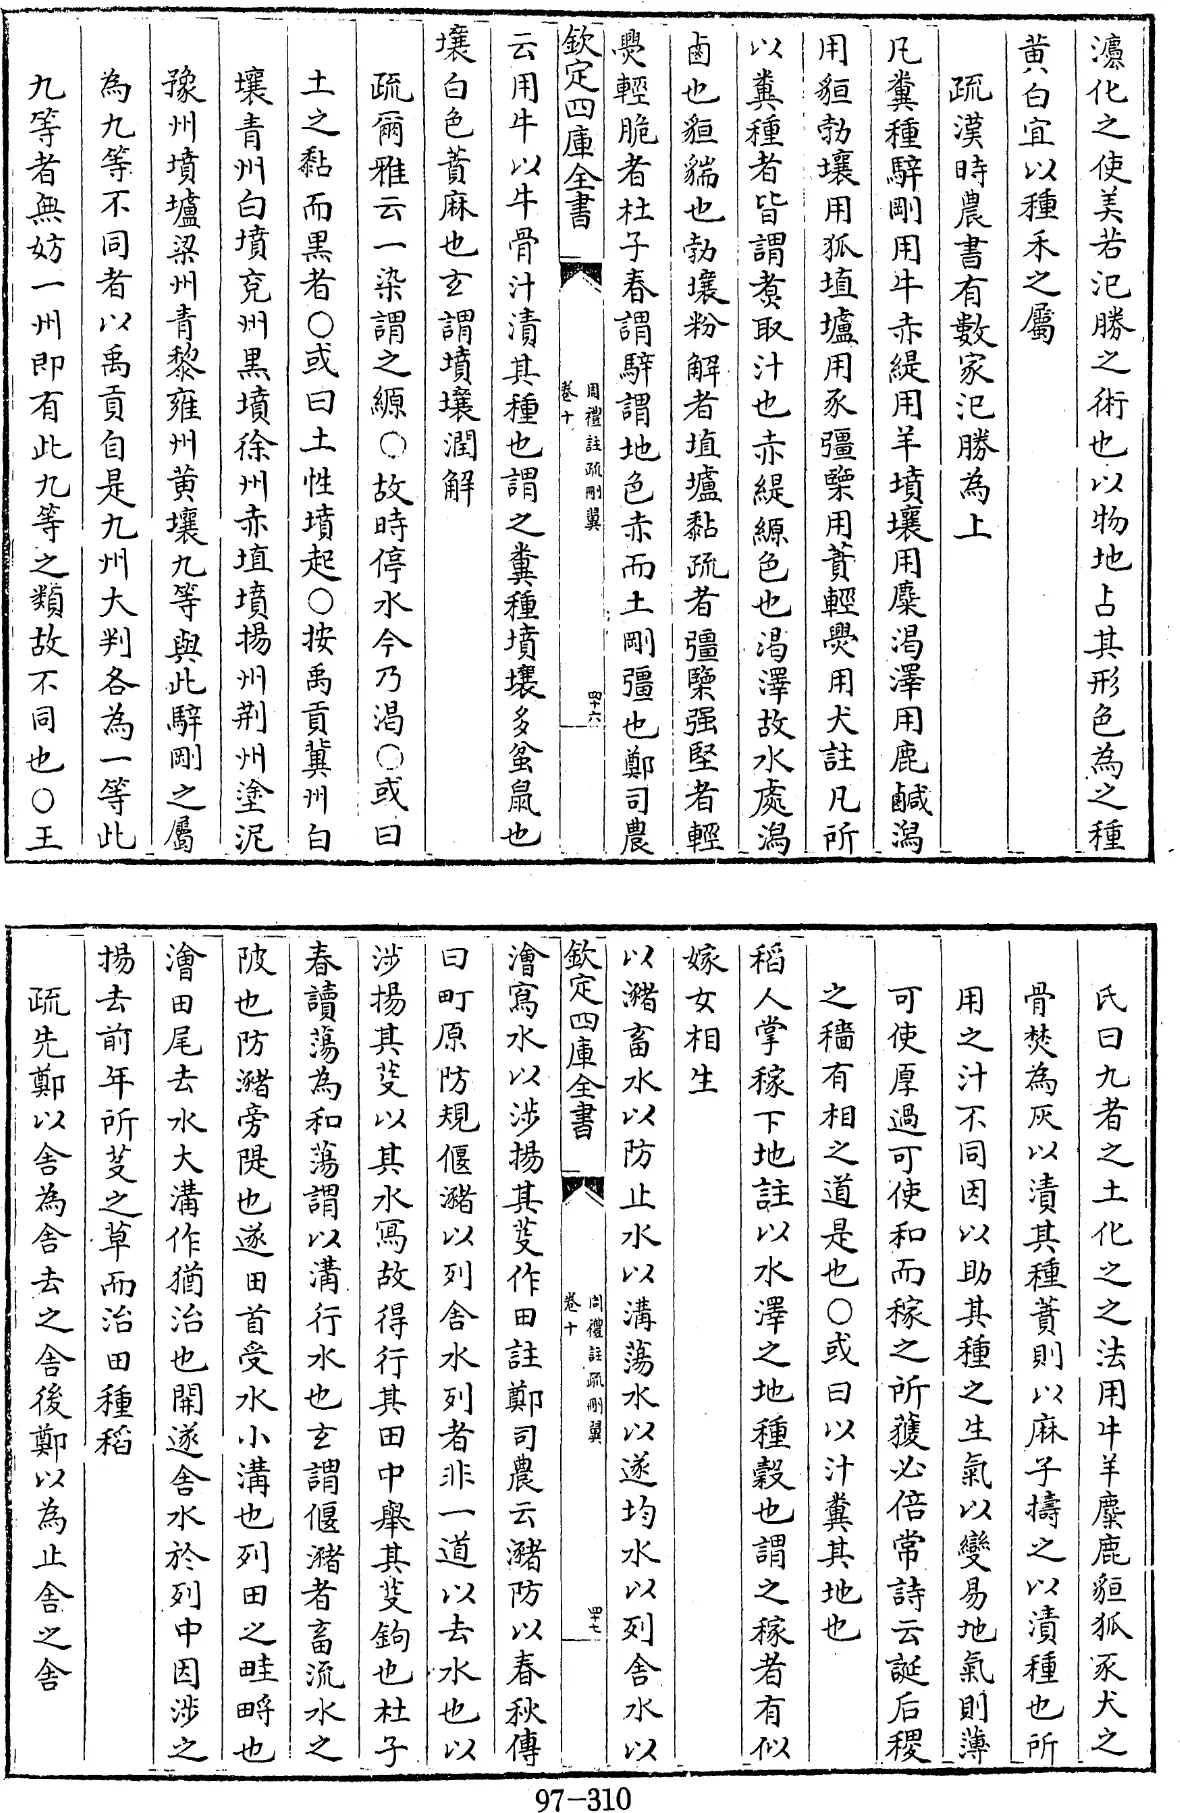 灋化之使美若汜勝之術也以物地占其形色為之種
黄白宜以種禾之屬
疏漢時農書有數家汜勝為上
凡糞種騂剛用牛赤緹用羊墳壤用麋渴澤用鹿鹹潟
用貆勃壤用狐埴壚用豕彊㯺用蕡輕㷅用犬註凡所
以糞種者皆謂煑取汁也赤緹縓色也渴澤故水處潟
鹵也貆貒也勃壤粉解者埴壚黏疏者彊㯺强堅者輕
㷅輕脆者杜子春謂騂謂地色赤而土剛彊也鄭司農
欽定四庫全書
周禮註疏刪翼
卷十
四十六
云用牛以牛骨汁漬其種也謂之糞種墳壤多蚠鼠也
壤白色蕡麻也玄謂墳壤潤解
疏爾雅云一染謂之縓○故時停水今乃渴○或曰
土之黏而黑者○或曰土性墳起○按禹貢冀州白
壤青州白墳兖州黒墳徐州赤埴墳揚州荆州塗泥
豫州墳壚梁州青黎雍州黄壤九等與此騂剛之屬
為九等不同者以禹貢自是九州大判各為一等此
九等者無妨一州即有此九等之類故不同也○王
氏曰九者之土化之之法用牛羊麋鹿貆狐豕犬之
骨焚為灰以漬其種蕡則以麻子擣之以漬種也所
用之汁不同因以助其種之生氣以變易地氣則薄
可使厚過可使和而稼之所獲必倍常詩云誕后稷
之穡有相之道是也○或曰以汁糞其地也
稻人掌稼下地註以水澤之地種穀也謂之稼者有似
嫁女相生
以瀦畜水以防止水以溝蕩水以遂均水以列舍水以
欽定四庫全書
周禮註疏刪翼
卷十
四十七
澮寫水以涉揚其芟作田註鄭司農云瀦防以春秋傳
曰町原防規偃瀦以列舍水列者非一道以去水也以
涉揚其芟以其水寫故得行其田中舉其芟鉤也杜子
春讀蕩為和蕩謂以溝行水也玄謂偃瀦者畜流水之
陂也防瀦旁隄也遂田首受水小溝也列田之畦㽟也
澮田尾去水大溝作猶治也開遂舍水於列中因涉之
揚去前年所芟之草而治田種稻
疏先鄭以舍為舍去之舍後鄭以為止舍之舍
97-310